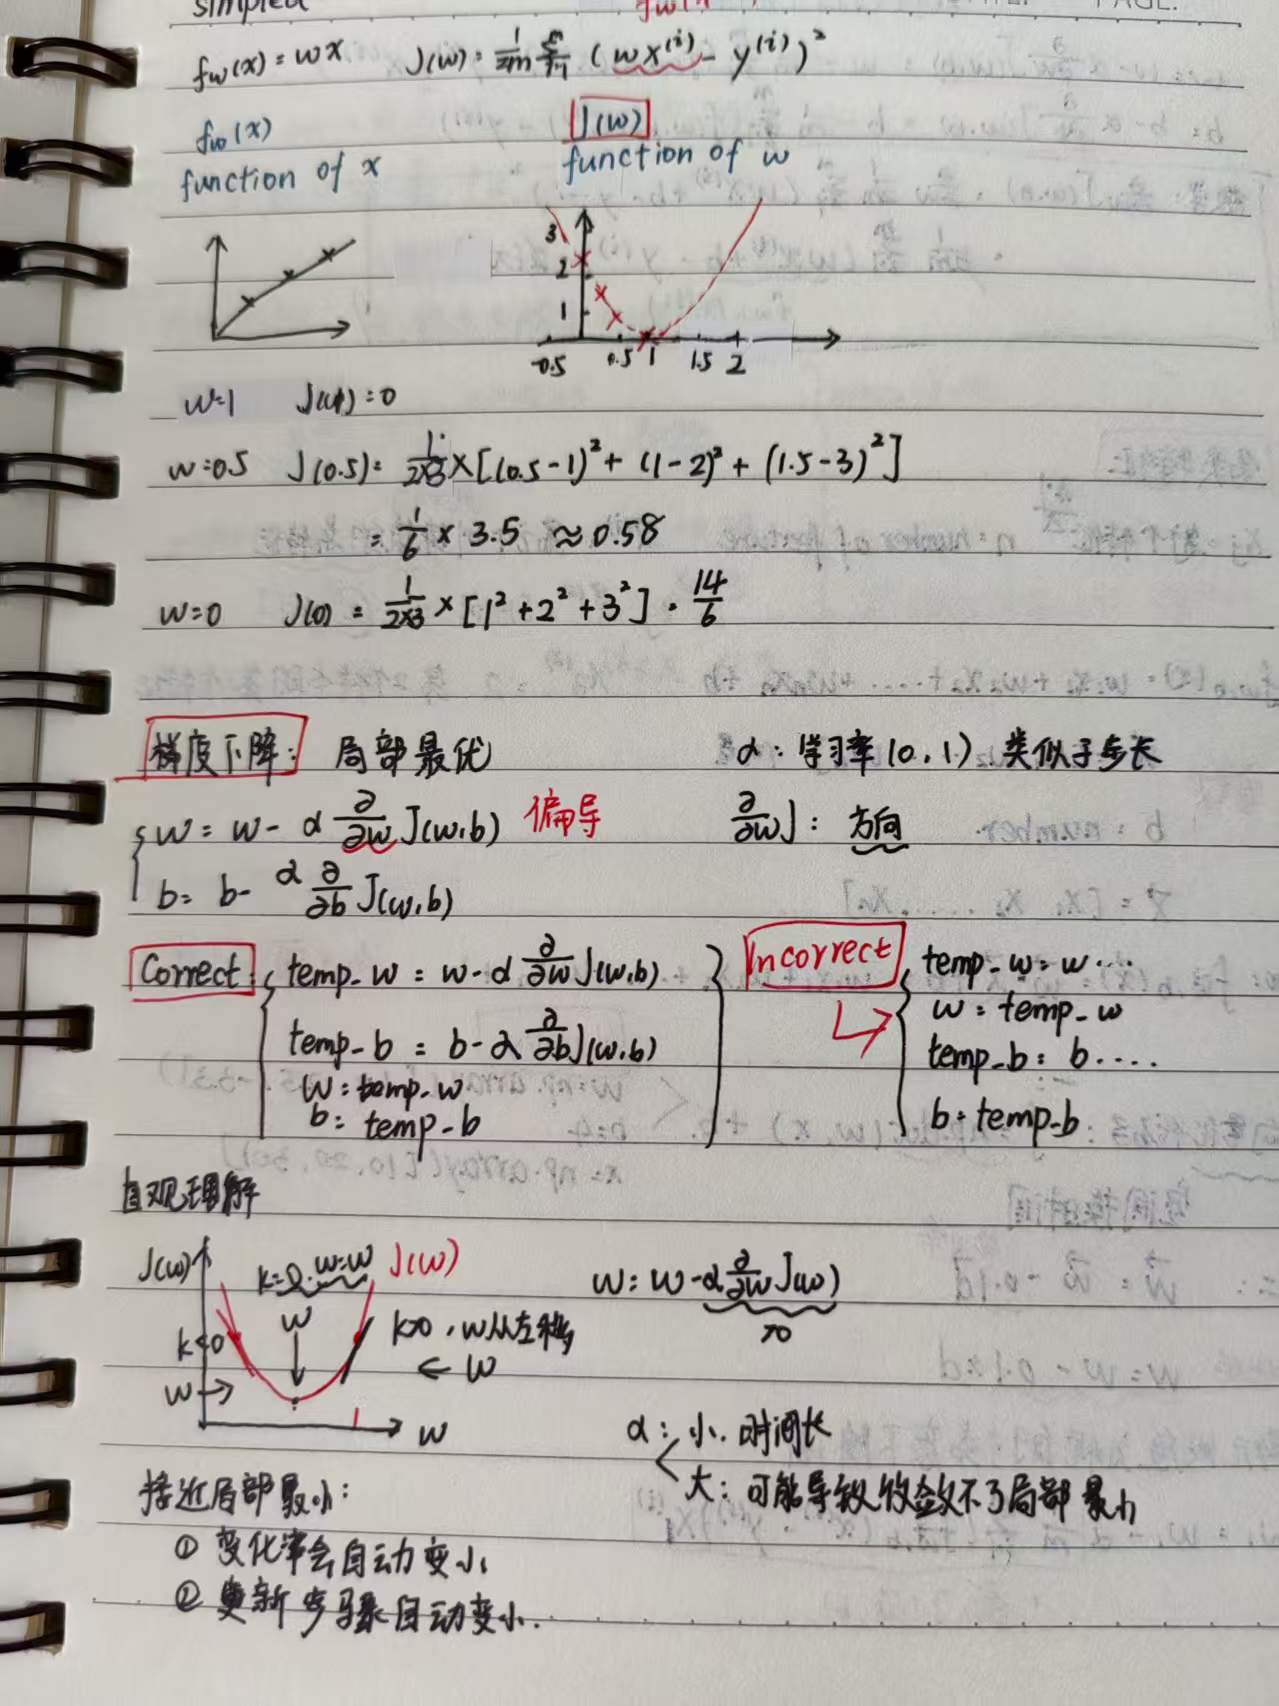 simplied
fw(x) = wx J(w) = 1/2m Σ(i=1→m) (wx⁽ⁱ⁾ - y⁽ⁱ⁾)²
fw(x) J(w)
function of x function of w
3
2
1
-0.5 0.5 1 1.5 2
w=1 J(w) = 0
w=0.5 J(0.5) = 1/2×3 × [(0.5-1)² + (1-2)² + (1.5-3)²]
= 1/6 × 3.5 ≈ 0.58
w=0 J(0) = 1/2×3 × [1²+2²+3²] = 14/6
梯度下降: 局部最优 α: 学习率(0,1) 类似于步长
w = w - α ∂/∂w J(w,b) 偏导 ∂/∂w J: 方向
b = b - α ∂/∂b J(w,b)
Correct: temp_w = w - α ∂/∂w J(w,b) Incorrect temp_w = w ...
w = temp_w
temp_b = b - α ∂/∂b J(w,b) temp_b = b ....
w = temp_w
b = temp_b b = temp_b
直观理解
J(w) k=0, w=w J(w) w = w - α ∂/∂w J(w)
>0
k<0 w k>0, w从左移
w → ← w
w
α: 小. 时间长
大: 可能导致收敛不了局部最小
接近局部最小:
① 变化率会自动变小
② 更新步骤自动变小.